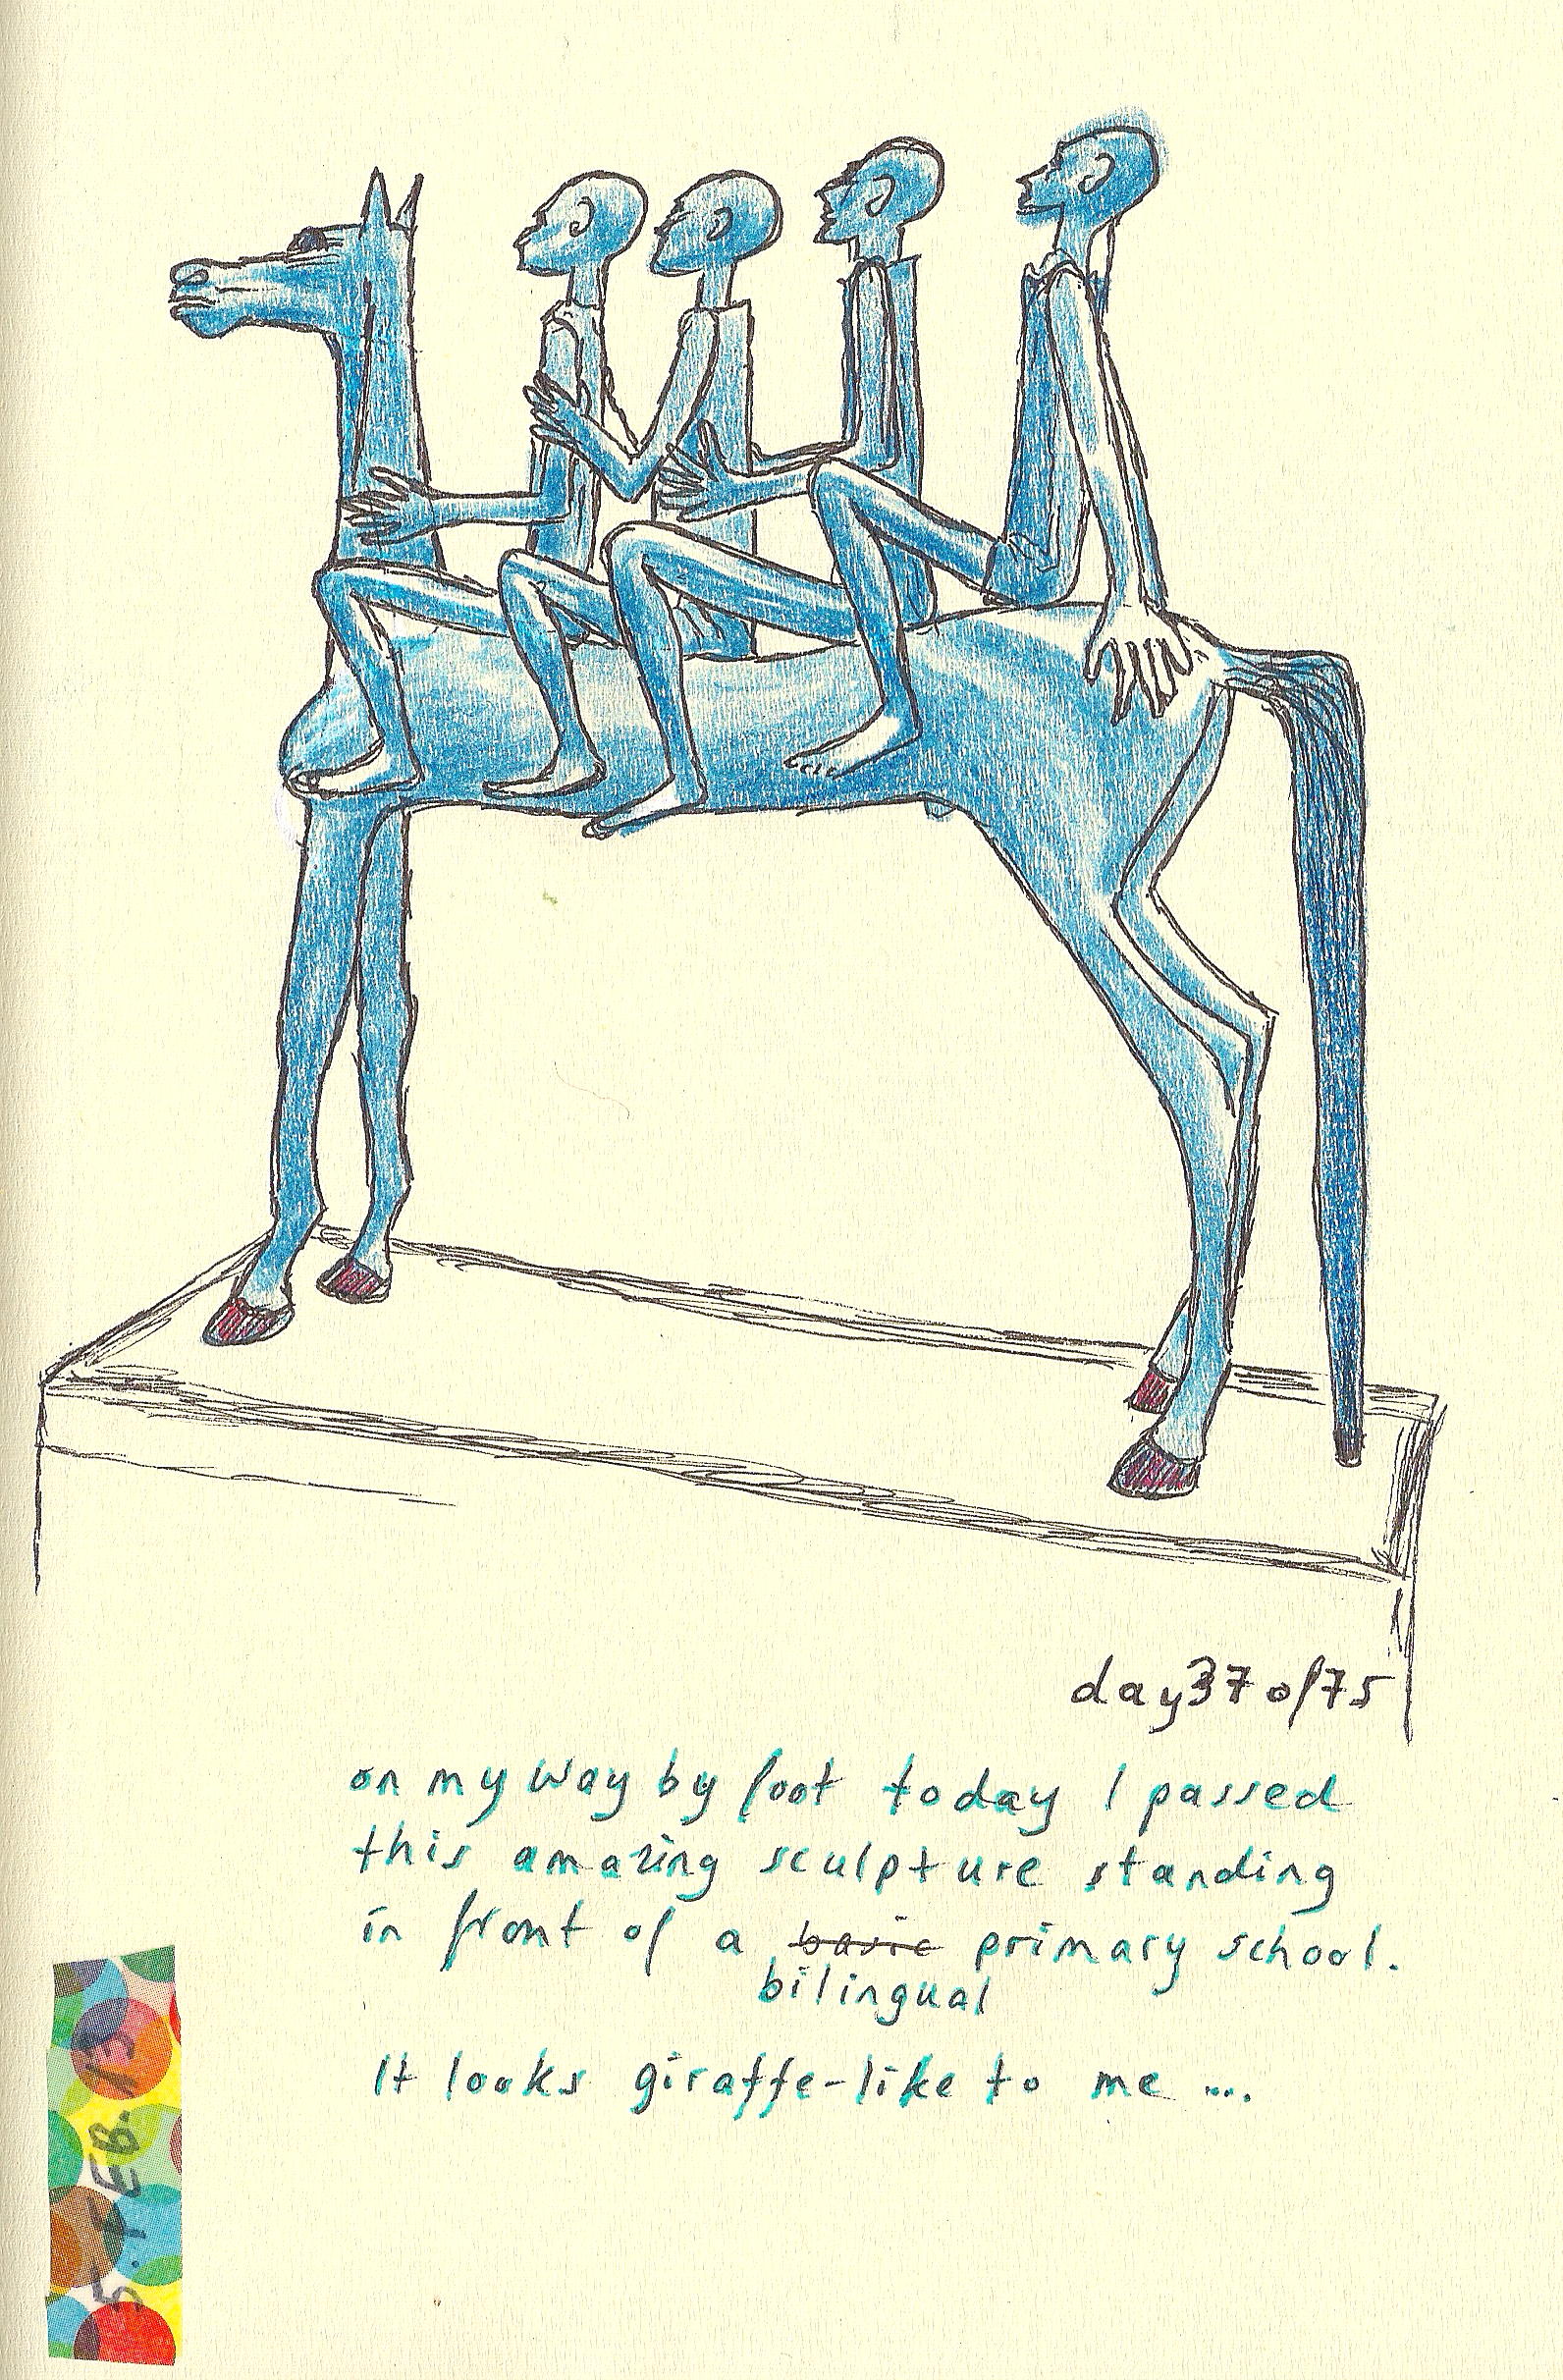 day 37 of 75
on my way by foot today I passed
this amazing sculpture standing
in front of a basic primary school.
bilingual
It looks giraffe-like to me ....
5. FEB. 13